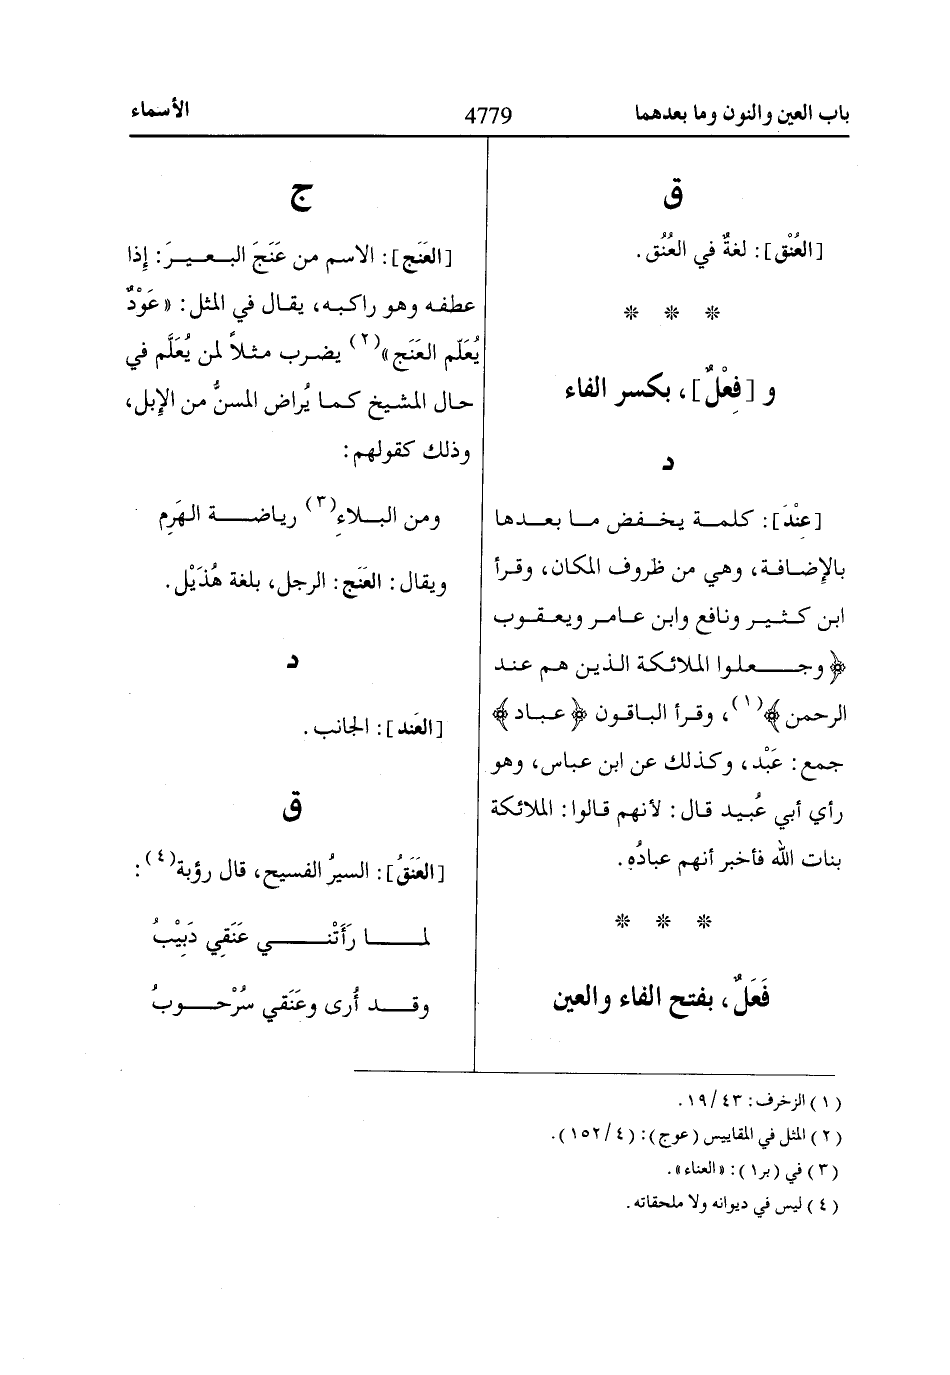 باب العين والنون وما بعدهما 4779 الأسماء
ق
[العُنْق]: لغةٌ في العُنُق.
* * *
و [فِعْلٌ]، بكسر الفاء
د
[عِنْدَ]: كلمـة يخـفض مـا بعـدها
بالإضـافـة، وهي من ظروف المكان، وقـرأ
ابن كـثيـر ونافع وابن عـامـر ويعـقـوب
﴿وجـعـلوا الملائكة الذين هم عـنـد
الرحمن﴾(١)، وقـرأ البـاقـون ﴿عـبـاد﴾
جمع: عَبْد، وكـذلك عن ابن عباس، وهو
رأي أبي عُبـيـد قـال: لأنهم قـالوا: الملائكة
بنات الله فأخبر أنهم عبادُه.
* * *
فَعَلٌ، بفتح الفاء والعين
ج
[العَنَج]: الاسم من عَنَجَ البـعـيـرَ: إذا
عطفه وهو راكبه، يقـال في المثل: «عَوْدٌ
يُعَلّم العَنَج»(٢) يضـرب مـثـلاً لمن يُعَلَّم في
حـال المـشيـخ كـمـا يُراض المسنُّ من الإبل،
وذلك كقولهم:
ومن البـلاءِ(٣) رياضـة الهَرِم
ويقال: العَنَج: الرجل، بلغة هُذَيْل.
د
[العَند]: الجانب.
ق
[العَنَقُ]: السيرُ الفسيح، قال رؤبة(٤):
لمـا رَأَتْنـي عَنَقِي دَبِيْبُ
وقـد أُرى وعَنَقي سُرْحـوبُ
(١) الزخرف: ٤٣/ ١٩.
(٢) المثل في المقاييس (عوج): (٤/ ١٥٢).
(٣) في (بر١): «العناء».
(٤) ليس في ديوانه ولا ملحقاته.